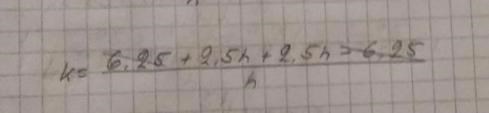 k = 6,25 + 2,5h + 2,5h - 6,25
h